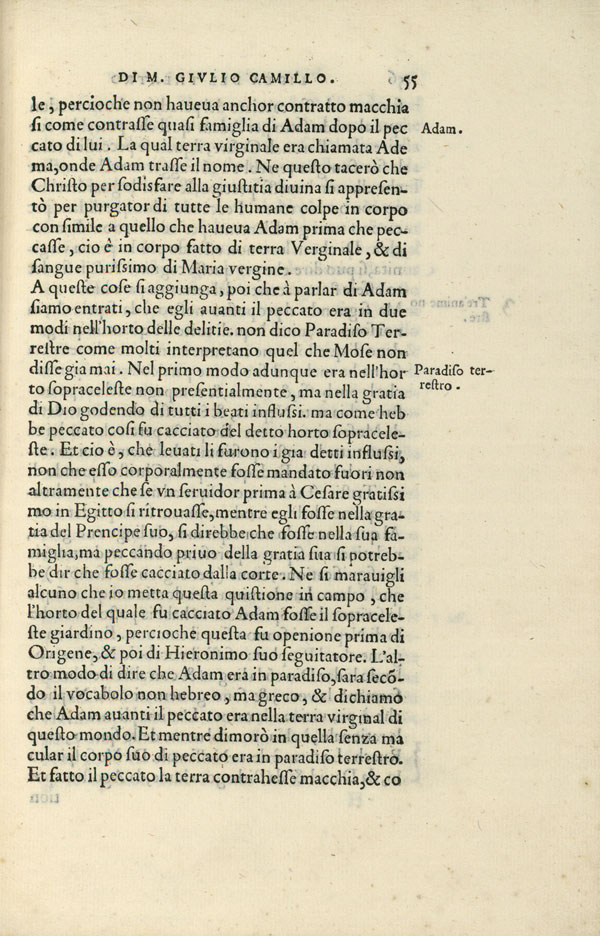 DI M. GIVLIO CAMILLO. 55
le, percioche non haueua anchor contratto macchia
ſi come contraſſe quaſi famiglia di Adam dopo il pec
Adam.
cato di lui. La qual terra virginale era chiamata Ade
ma, onde Adam traſſe il nome. Ne queſto tacerò che
Chriſto per ſodisfare alla giuſtitia diuina ſi appreſen-
tò per purgator di tutte le humane colpe in corpo
conſimile a quello che haueua Adam prima che pec-
caſſe, cio è in corpo fatto di terra Verginale, & di
ſangue puriſſimo di Maria vergine.
A queſte coſe ſi aggiunga, poi che à parlar di Adam
ſiamo entrati, che egli auanti il peccato era in due
modi nell'horto delle delitie. non dico Paradiſo Ter-
reſtre come molti interpretano quel che Moſe non
diſſe gia mai. Nel primo modo adunque era nell'hor
Paradiſo ter-
reſtro.
to ſopraceleſte non preſentialmente, ma nella gratia
di Dio godendo di tutti i beati influſſi. ma come heb
be peccato coſi fu cacciato del detto horto ſopracele-
ſte. Et cio è, che leuati li furono i gia detti influſſi,
non che eſſo corporalmente foſſe mandato fuori non
altramente che ſe vn ſeruidor prima à Ceſare gratiſſi
mo in Egitto ſi ritrouaſſe, mentre egli foſſe nella gra-
tia del Prencipe ſuo, ſi direbbe che foſſe nella ſua fa-
miglia, ma peccando priuo della gratia ſua ſi potreb-
be dir che foſſe cacciato dalla corte. Ne ſi marauigli
alcuno che io metta queſta quiſtione in campo, che
l'horto del quale fu cacciato Adam foſſe il ſopracele-
ſte giardino, percioche queſta fu openione prima di
Origene, & poi di Hieronimo ſuo ſeguitatore. L'al-
tro modo di dire che Adam era in paradiſo, ſara ſecō-
do il vocabolo non hebreo, ma greco, & dichiamo
che Adam auanti il peccato era nella terra virginal di
queſto mondo. Et mentre dimorò in quella ſenza ma
cular il corpo ſuo di peccato era in paradiſo terreſtro.
Et fatto il peccato la terra contraheſſe macchia, & co